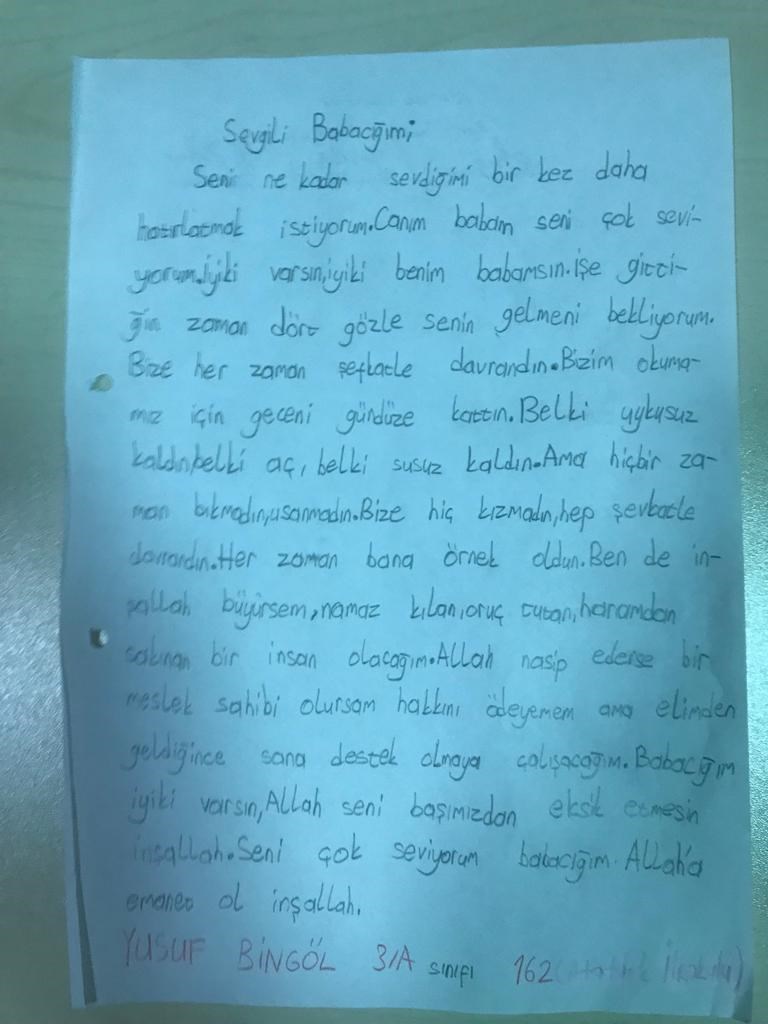 Sevgili Babacığım;
Seni ne kadar sevdiğimi bir kez daha
hatırlatmak istiyorum.Canım babam seni çok sevi-
yorum.İyiki varsın,iyiki benim babamsın.İşe gitti-
ğin zaman dört gözle senin gelmeni bekliyorum.
Bize her zaman şefkatle davrandın.Bizim okuma-
mız için geceni gündüze kattın.Belki uykusuz
kaldın,belki aç, belki susuz kaldın.Ama hiçbir za-
man bıkmadın,usanmadın.Bize hiç kızmadın,hep şevkatle
davrandın.Her zaman bana örnek oldun.Ben de in-
şallah büyürsem,namaz kılan,oruç tutan,haramdan
sakınan bir insan olacağım.Allah nasip ederse bir
meslek sahibi olursam hakkını ödeyemem ama elimden
geldiğince sana destek olmaya çalışacağım.Babacığım
iyiki varsın,Allah seni başımızdan eksik etmesin
inşallah.Seni çok seviyorum babacığım. Allah'a
emanet ol inşallah.
YUSUF BİNGÖL 3/A sınıfı 162 (Atatürk İlkokulu)